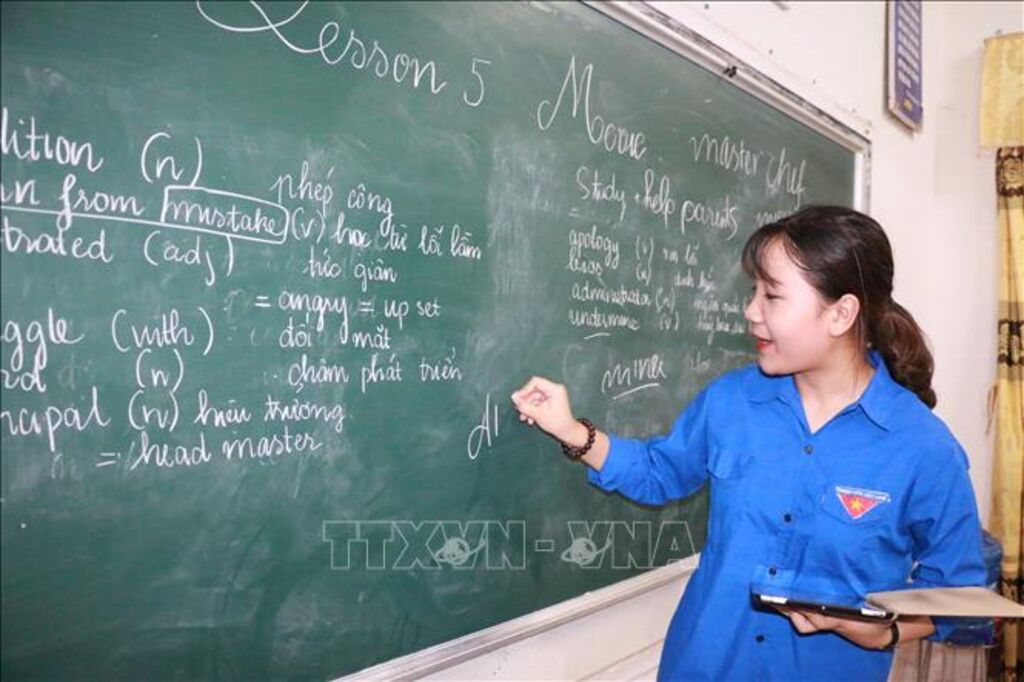 Lesson 5
lition (n)
phép cộng
n from mistake (v) học từ lỗi lầm
trated (adj) tức giận
= angry = up set
ggle (with) đối mặt
(n) chậm phát triển
ncipal (n) hiệu trưởng
= head master
Movie master chef
Study + help parents
apology (v) xin lỗi
administrator (n)
undermine (v)
miner
TTXVN - VNA